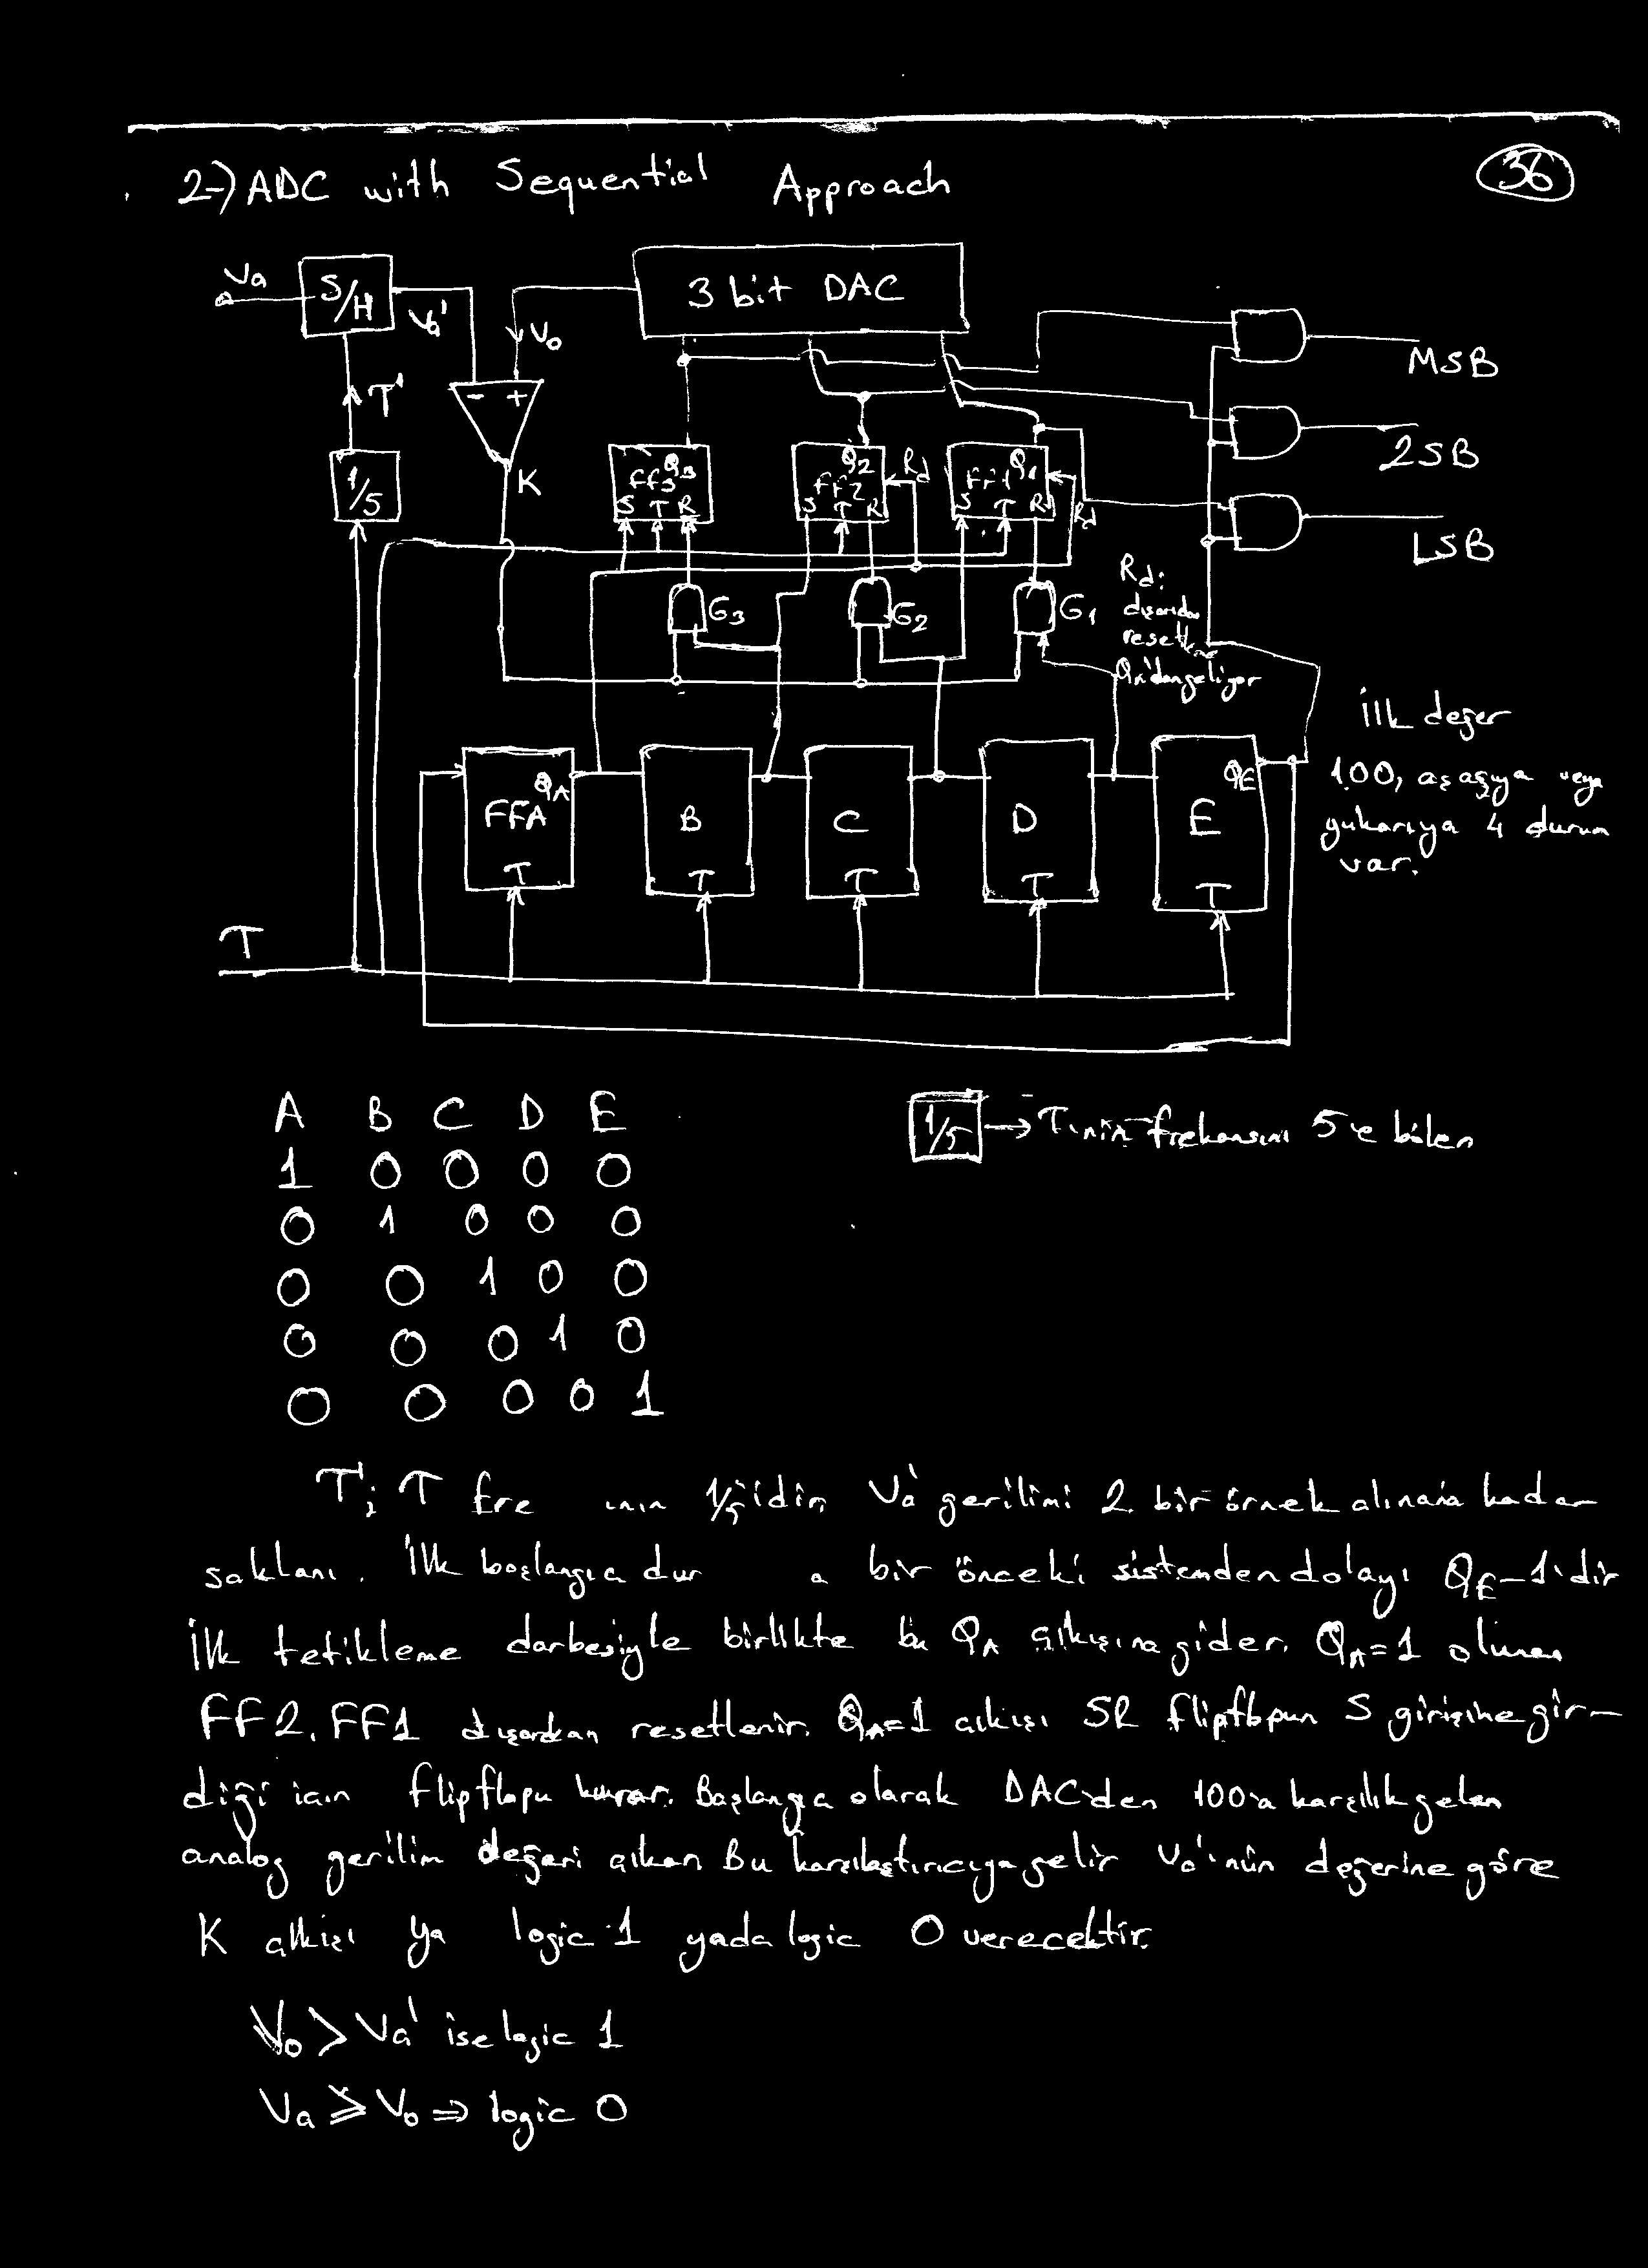 2-) ADC with Sequential Approach
36
Va
S/H
Va'
3 bit DAC
Vo
T'
- +
K
1/5
Q3
FF3
S T R
Q2
FF2
S T R
Rd
Q1
FF1
S T R
Rd
MSB
2SB
LSB
G3
G2
G1
Rd:
dışarıdan
resetleme
QA'dan geliyor
İlk değer
100, aşağıya veya
yukarıya 4 durum
var.
QA
FFA
T
B
T
C
T
D
T
QE
E
T
T
A B C D E
1 0 0 0 0
0 1 0 0 0
0 0 1 0 0
0 0 0 1 0
0 0 0 0 1
1/5 → T'nin frekansını 5'e bölen
T'; T fre ının 1/5'idir. Va' gerilimi 2. bir örnek alınana kadar
saklanı. İlk başlangıca dur a bir önceki sistemden dolayı QE-1'dir
İlk tetikleme darbesiyle birlikte bu QA çıkışına gider. QA=1 olunca
FF2, FF1 dışardan resetlenir. QA=1 çıkışı SR flipflopun S girişine gir-
diği için flipflopu kurar. Başlangıca olarak DAC'den 100'a karşılık gelen
analog gerilim değeri çıkan Bu karşılaştırıcıya gelir Va'nün değerine göre
K çıkışı ya logic 1 yada logic 0 verecektir.
Vo > Va' ise logic 1
Va ≥ Vo ⇒ logic 0